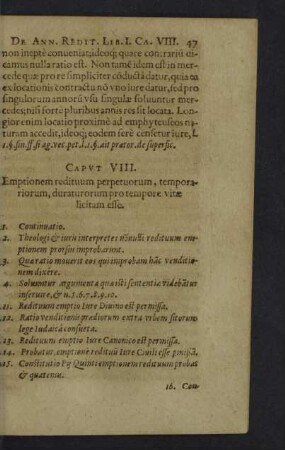 DE ANN. REDIT. LIB. I. CA. VIII. 47
non ineptè conueniat: ideoq; quare contrariũ di-
camus nulla ratio est. Non tamẽ idem est in mer-
cede quæ pro re simpliciter cõducta datur, quia ea
ex locationis contractu nõ vno iure datur, sed pro
singulorum annorũ vsu singulæ soluuntur mer-
cedes; nisi forte pluribus annis res sit locata. Lon-
gior enim locatio proximè ad emphyteuseos na-
turam accedit, ideoq; eodem ferè censetur iure, l.
1. §. sin ff. si ag. vec. pet. l. 1. §. ait prætor. de superfic.
CAPVT VIII.
Emptionem redituum perpetuorum, tempora-
riorum, duraturorum pro tempore vitæ
licitam esse.
1. Continuatio.
2. Theologi & iuris interpretes nõnulli redituum em-
ptionem prorsus improbarunt.
3. Quæ ratio mouerit eos qui improbam hãc venditio-
nem dixêre.
4. Soluuntur argumenta quæ isti sententiæ videbãtur
inseruire, & n. 5. 6. 7. 8. 9. 10.
11. Redituum emptio Iure Diuino est permissa.
12. Ratio venditionis prædiorum extra vrbem sitorum
lege Iudaicâ consueta.
13. Redituum emptio Iure Canonico est permissa.
14. Probatur emptionẽ redituũ Iure Ciuili esse
15. Constitutio Pij Quinti emptionem redituum probat
& quatenus.
16. Cau-